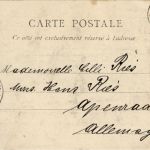 CARTE POSTALE
Ce côté est exclusivement réservé à l'adresse
Mademoiselle Lilli Riés
Hans Riés
Apenrad
Allemag